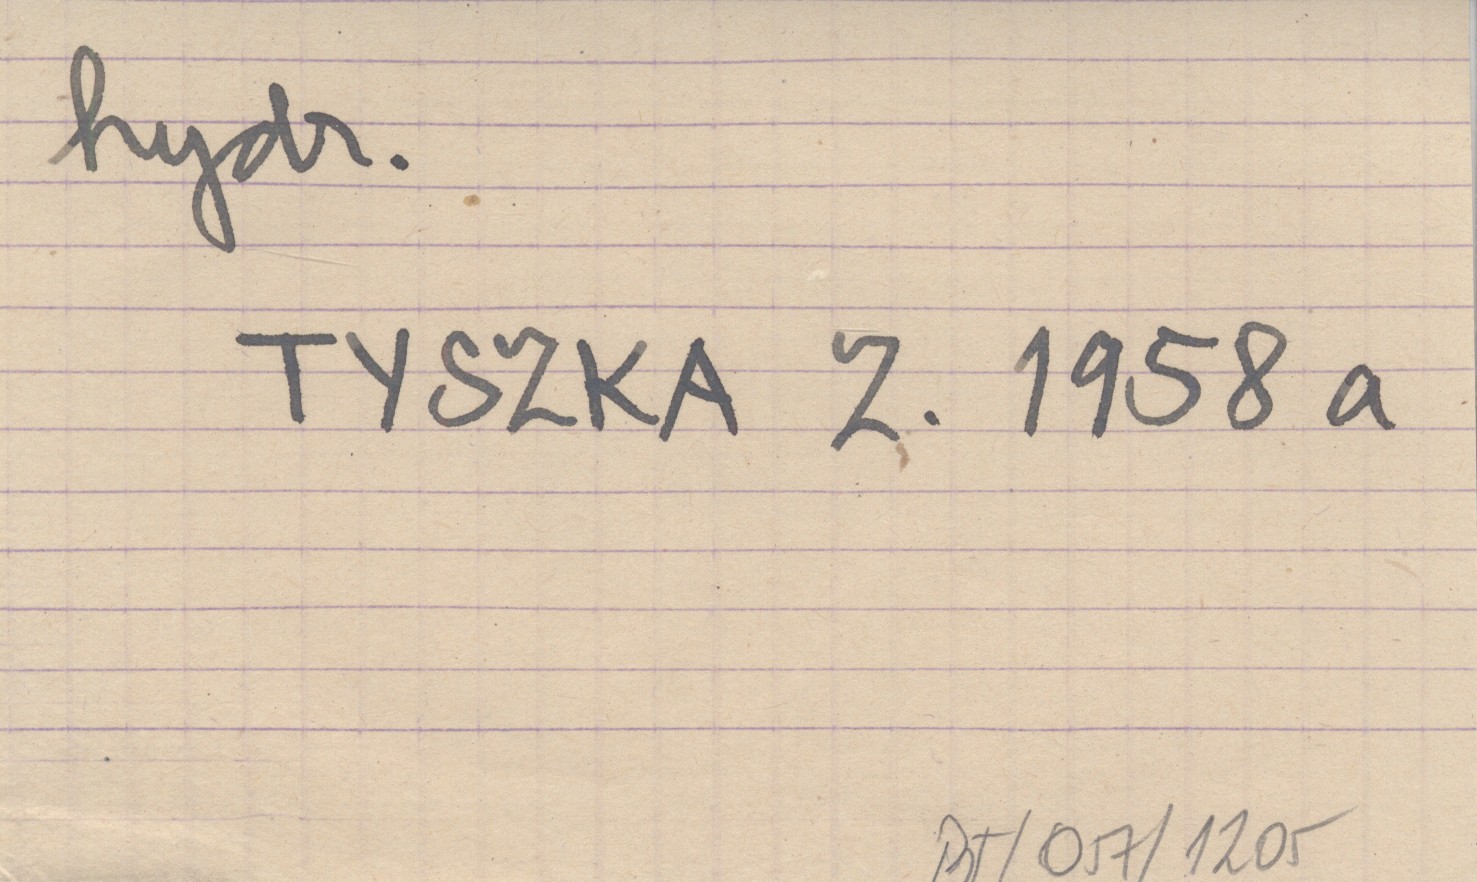 hydr.
TYSZKA Z. 1958 a
BT/057/1205